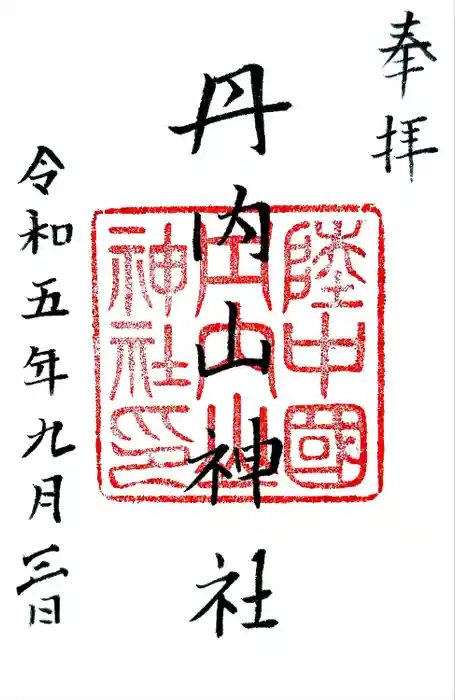 奉拝
丹内山神社
陸中國
丹内山
神社印
令和五年九月三日